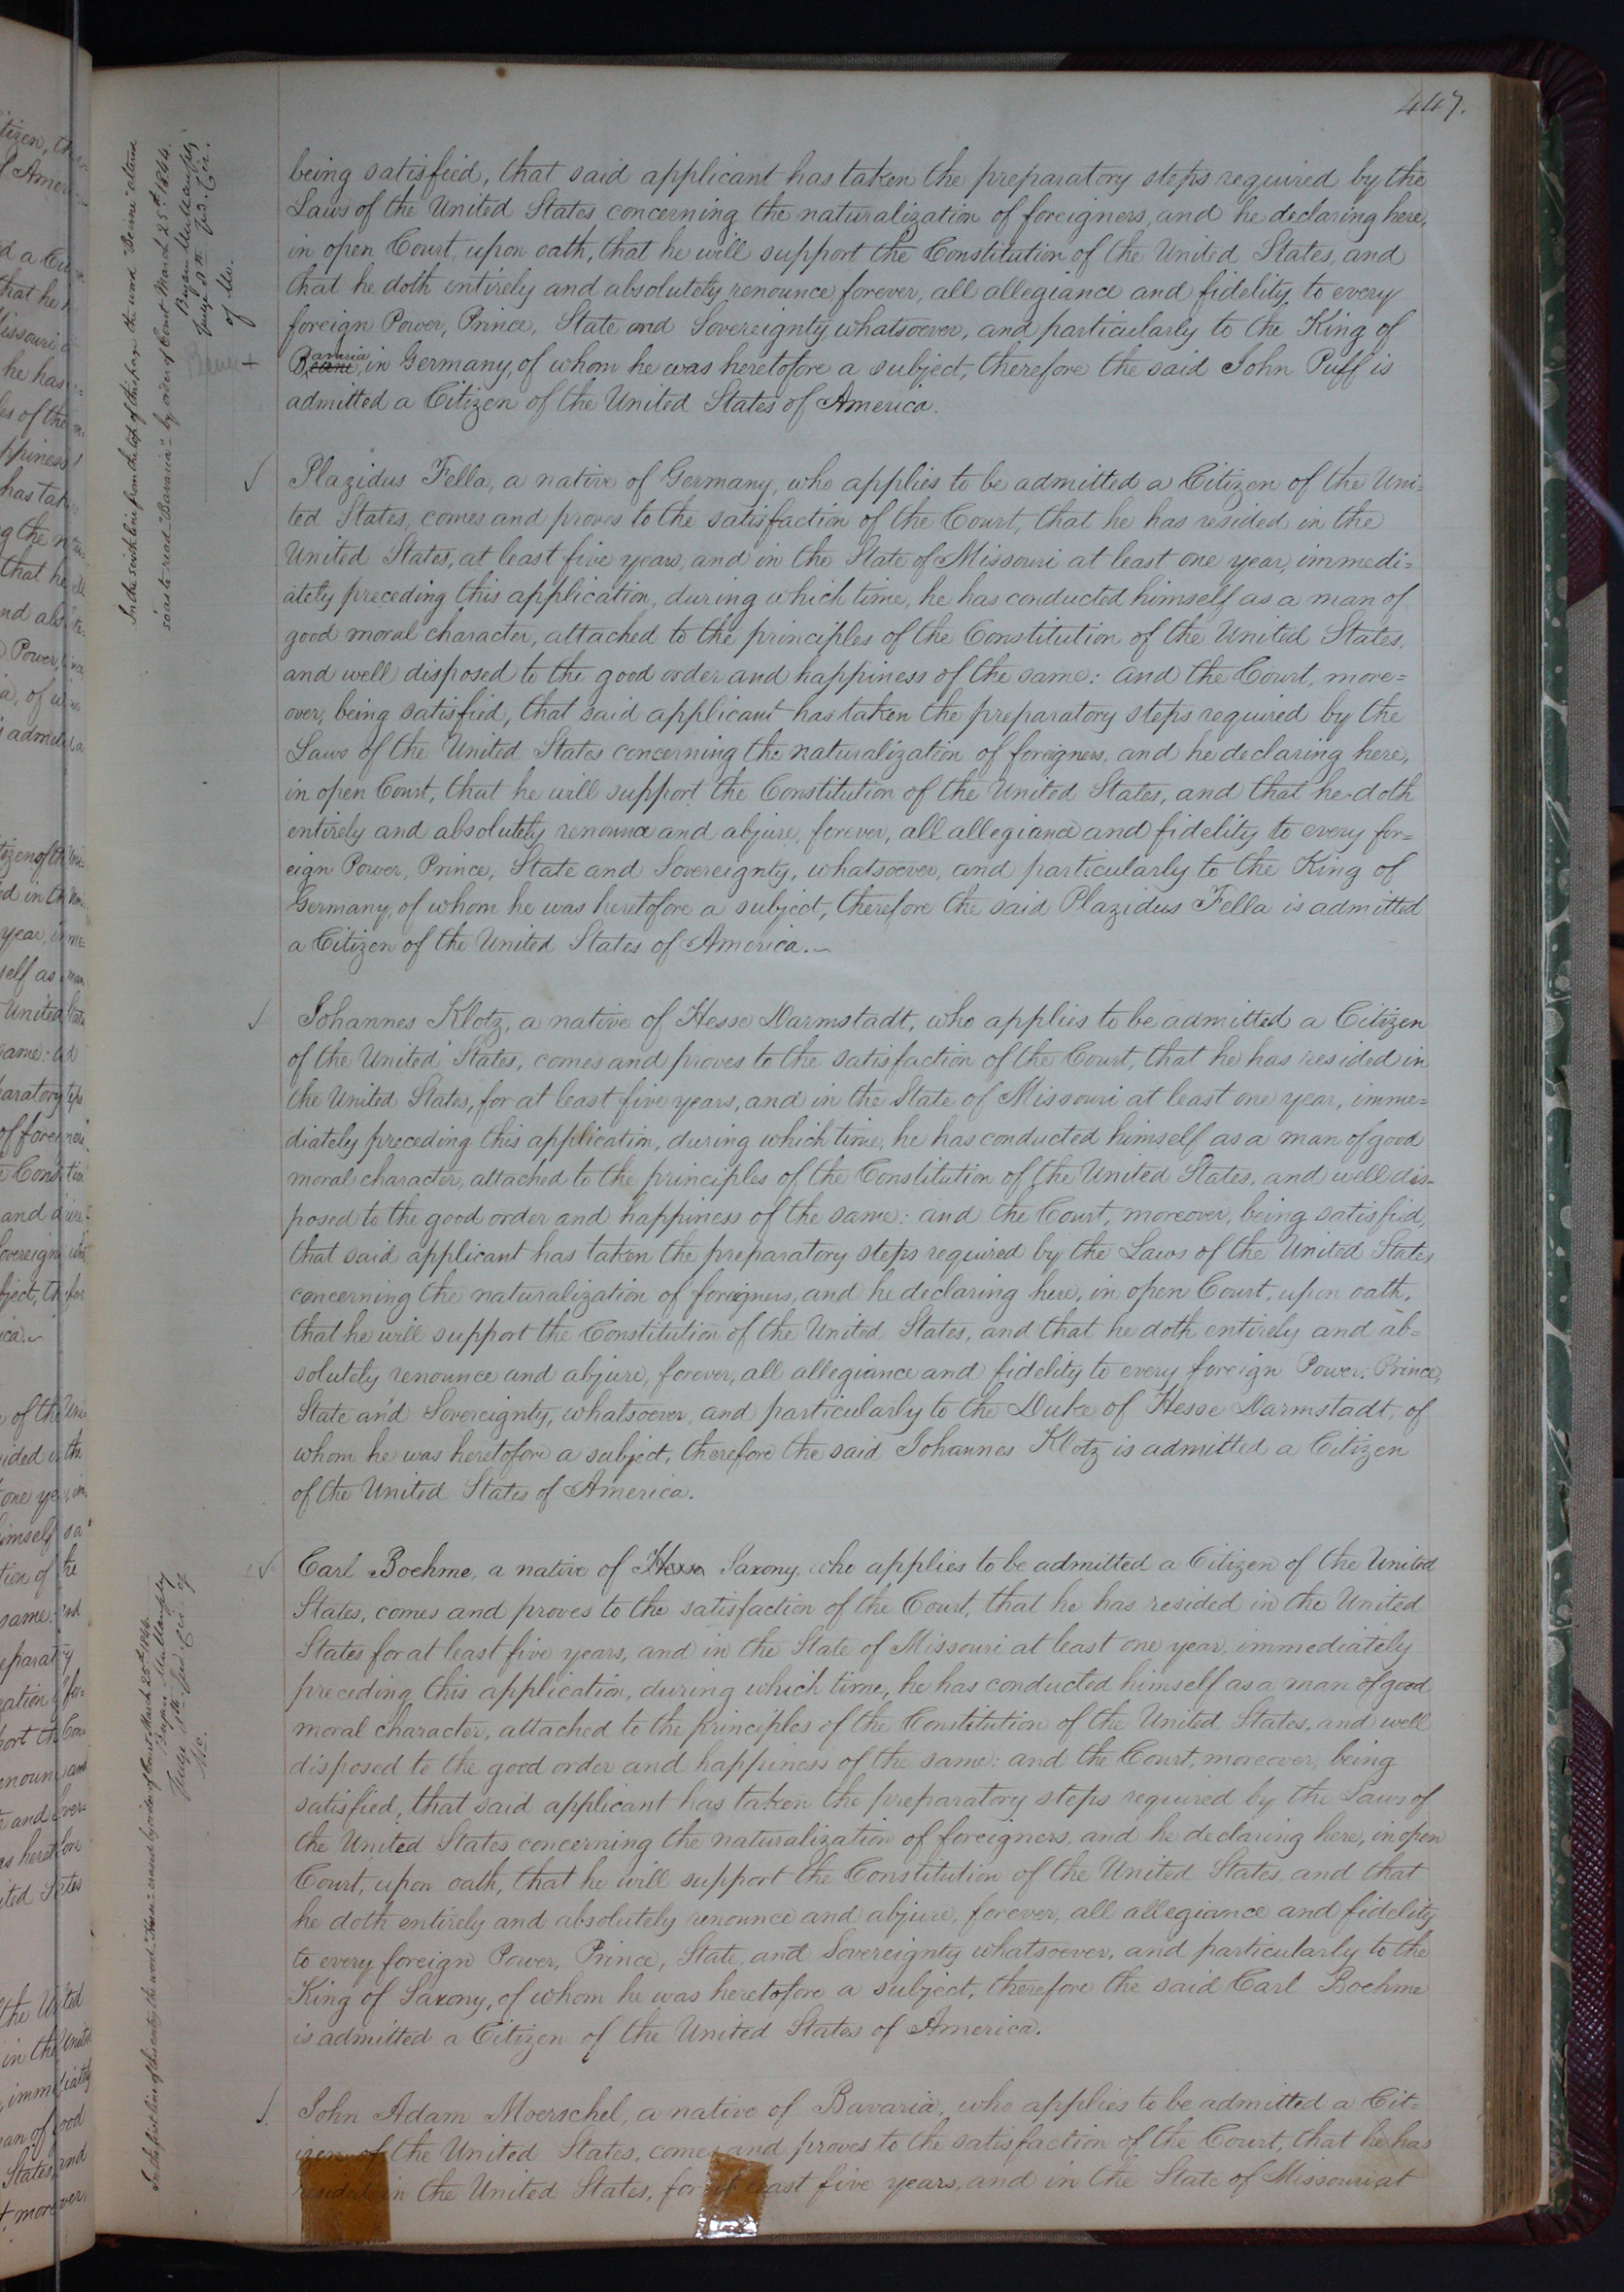 447.
In the sixth line from the top of this page the word "Beirne" altered
so as to read "Bavaria" by order of Court March 25th 1844.
Bryan Mullanphy
Judge 8th Jud. Cir.
of Mo.
being satisfied, that said applicant has taken the preparatory steps required by the
Laws of the United States concerning the naturalization of foreigners, and he declaring here,
in open Court, upon oath, that he will support the Constitution of the United States, and
that he doth entirely and absolutely renounce forever, all allegiance and fidelity to every
foreign Power, Prince, State and Sovereignty whatsoever, and particularly to the King of
Bavaria, in Germany, of whom he was heretofore a subject, therefore the said John Puff is
admitted a Citizen of the United States of America.
Plazidus Fella, a native of Germany, who applies to be admitted a Citizen of the Uni=
ted States, comes and proves to the satisfaction of the Court, that he has resided in the
United States, at least five years, and in the State of Missouri at least one year, immedi=
ately preceding this application, during which time, he has conducted himself as a man of
good moral character, attached to the principles of the Constitution of the United States,
and well disposed to the good order and happiness of the same: and the Court, more=
over, being satisfied, that said applicant has taken the preparatory steps required by the
Laws of the United States concerning the naturalization of foreigners, and he declaring here,
in open Court, that he will support the Constitution of the United States, and that he doth
entirely and absolutely renounce and abjure, forever, all allegiance and fidelity to every for=
eign Power, Prince, State and Sovereignty, whatsoever, and particularly to the King of
Germany, of whom he was heretofore a subject, therefore the said Plazidus Fella is admitted
a Citizen of the United States of America.
Johannes Klotz, a native of Hesse Darmstadt, who applies to be admitted a Citizen
of the United States, comes and proves to the satisfaction of the Court, that he has resided in
the United States, for at least five years, and in the State of Missouri at least one year, imme=
diately preceding this application, during which time, he has conducted himself as a man of good
moral character, attached to the principles of the Constitution of the United States, and well dis=
posed to the good order and happiness of the same: and the Court, moreover, being satisfied,
that said applicant has taken the preparatory steps required by the Laws of the United States
concerning the naturalization of foreigners, and he declaring here, in open Court, upon oath,
that he will support the Constitution of the United States, and that he doth entirely and ab=
solutely renounce and abjure, forever, all allegiance and fidelity to every foreign Power, Prince,
State and Sovereignty, whatsoever, and particularly to the Duke of Hesse Darmstadt, of
whom he was heretofore a subject, therefore the said Johannes Klotz is admitted a Citizen
of the United States of America.
In the first line of this entry the word "Hesse" erased by order of Court March 25th 1844.
Bryan Mullanphy
Judge 8th Jud. Cir. of
Mo.
Carl Boehme, a native of Hesse Saxony, who applies to be admitted a Citizen of the United
States, comes and proves to the satisfaction of the Court, that he has resided in the United
States for at least five years, and in the State of Missouri at least one year, immediately
preceding this application, during which time, he has conducted himself as a man of good
moral character, attached to the principles of the Constitution of the United States, and well
disposed to the good order and happiness of the same: and the Court, moreover, being
satisfied, that said applicant has taken the preparatory steps required by the Laws of
the United States concerning the naturalization of foreigners, and he declaring here, in open
Court, upon oath, that he will support the Constitution of the United States, and that
he doth entirely and absolutely renounce and abjure, forever, all allegiance and fidelity
to every foreign Power, Prince, State, and Sovereignty whatsoever, and particularly to the
King of Saxony, of whom he was heretofore a subject, therefore the said Carl Boehme
is admitted a Citizen of the United States of America.
John Adam Moerschel, a native of Bavaria, who applies to be admitted a Cit=
izen of the United States, comes and proves to the satisfaction of the Court, that he has
resided in the United States, for at least five years, and in the State of Missouri at